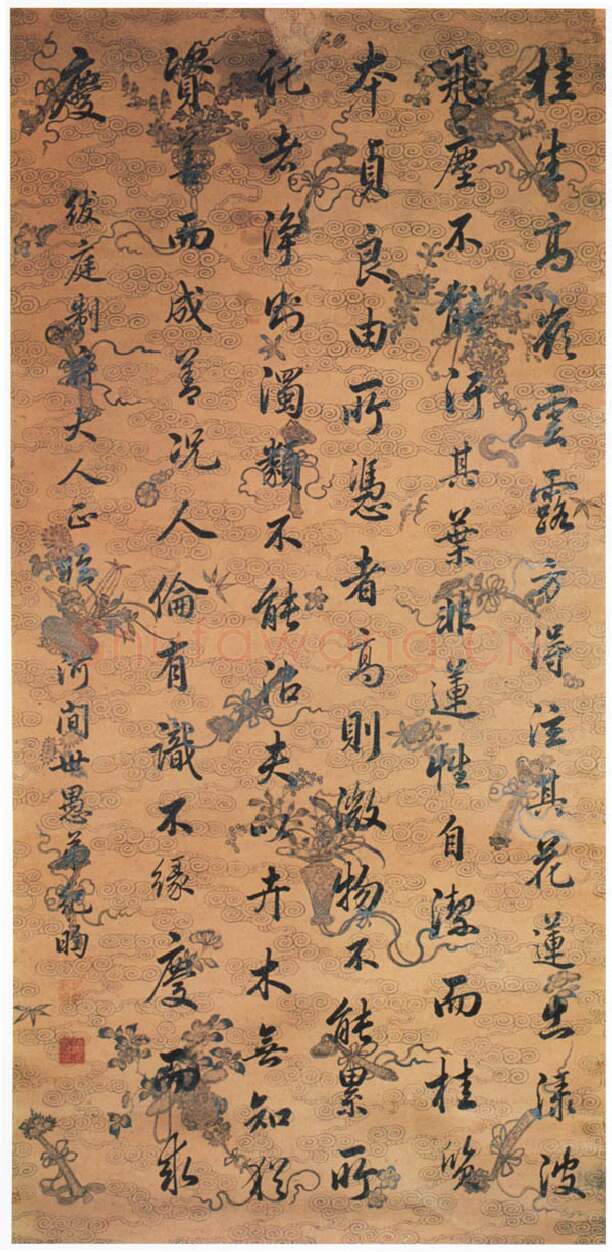 桂生高嶺雲露方得注其花蓮出淥波
飛塵不能汙其葉非蓮性自潔而桂質
本貞良由所憑者高則微物不能累所
託者淨則濁類不能沾夫以卉木無知猶
資善而成善況人倫有識不緣慶而求
慶
紱庭制府大人正臨 河間世愚弟紀昀
Shufawang.CN